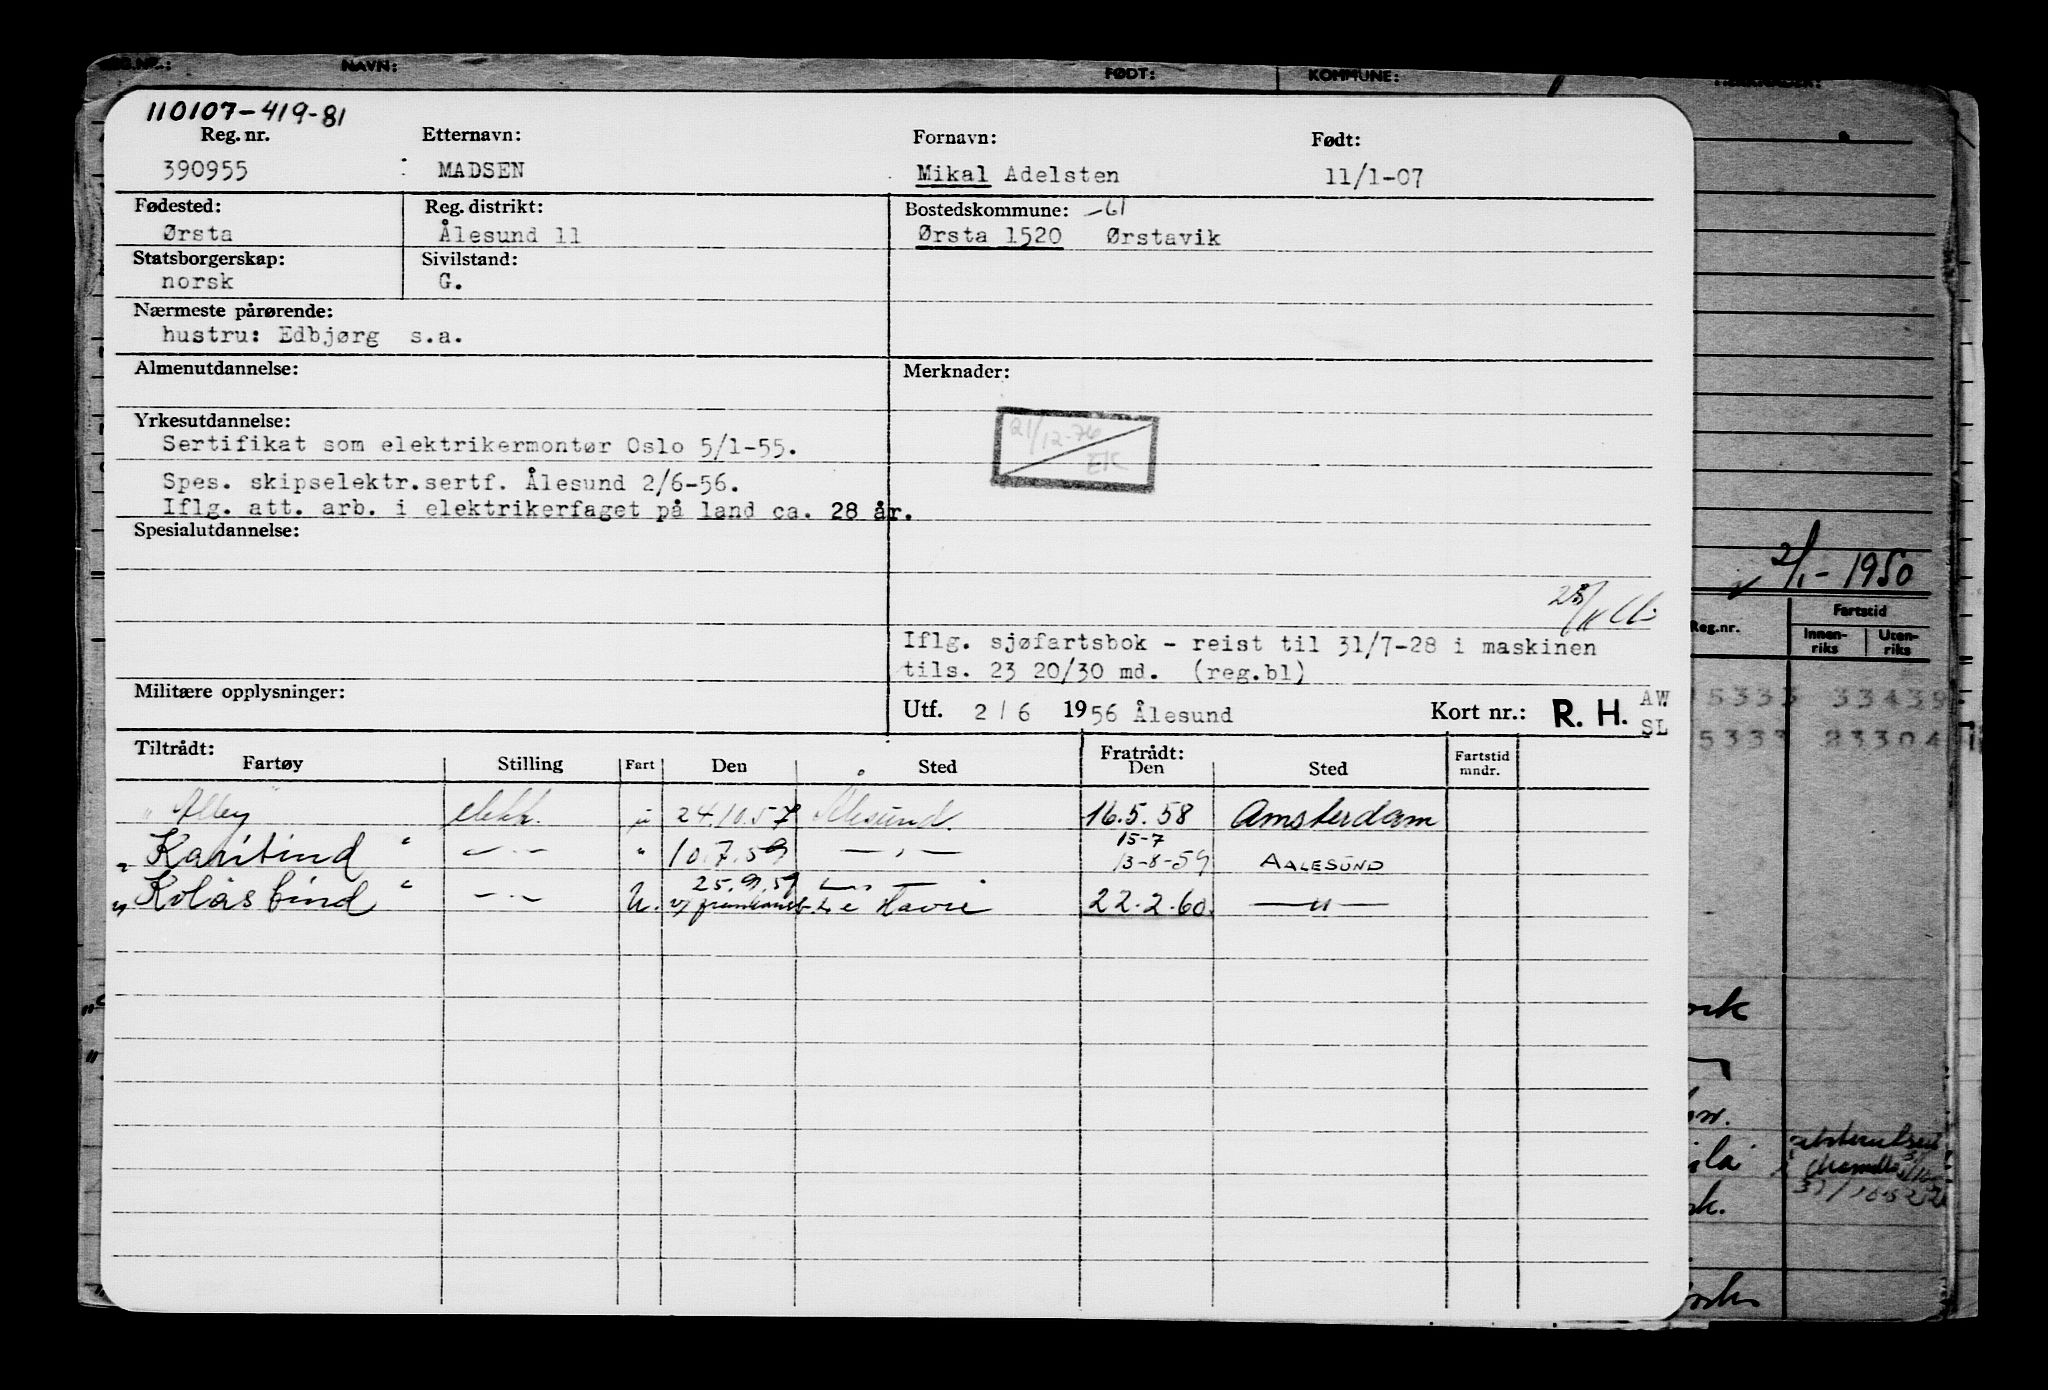 NAVN: FØDT: KOMMUNE:
110107-419-81
Reg. nr. Etternavn: Fornavn: Født:
390955 MADSEN Mikal Adelsten 11/1-07
Fødested: Reg. distrikt: Bostedskommune: -61
Ørsta Ålesund 11 Ørsta 1520 Ørstavik
Statsborgerskap: Sivilstand:
norsk G.
Nærmeste pårørende:
hustru: Edbjørg s.a.
Almenutdannelse: Merknader:
Yrkesutdannelse:
21/12-76
Sertifikat som elektrikermontør Oslo 5/1-55.
EK
Spes. skipselektr.sertf. Ålesund 2/6-56.
Iflg. att. arb. i elektrikerfaget på land ca. 28 år.
Spesialutdannelse:
2/1-1950
Reg.nr. Fartstid
Innen-riks Uten-riks
Iflg. sjøfartsbok - reist til 31/7-28 i maskinen
tils. 23 20/30 md. (reg.bl)
Militære opplysninger:
Utf. 2/6 1956 Ålesund Kort nr.: R. H. AW
SL
5333 33439
5333 23304
Tiltrådt: Fratrådt:
Fartøy Stilling Fart Den Sted Den Sted Fartstid mndr.
"Alley" elektr. u 24.10.57 Ålesund. 16.5.58 Amsterdam
"Karitind" — " — " 10.7.59 — " — 15-7
13-8-59 AALESUND
"Kolåstind" — " — U. 25.9.59 Le Havre 22.2.60. — " —